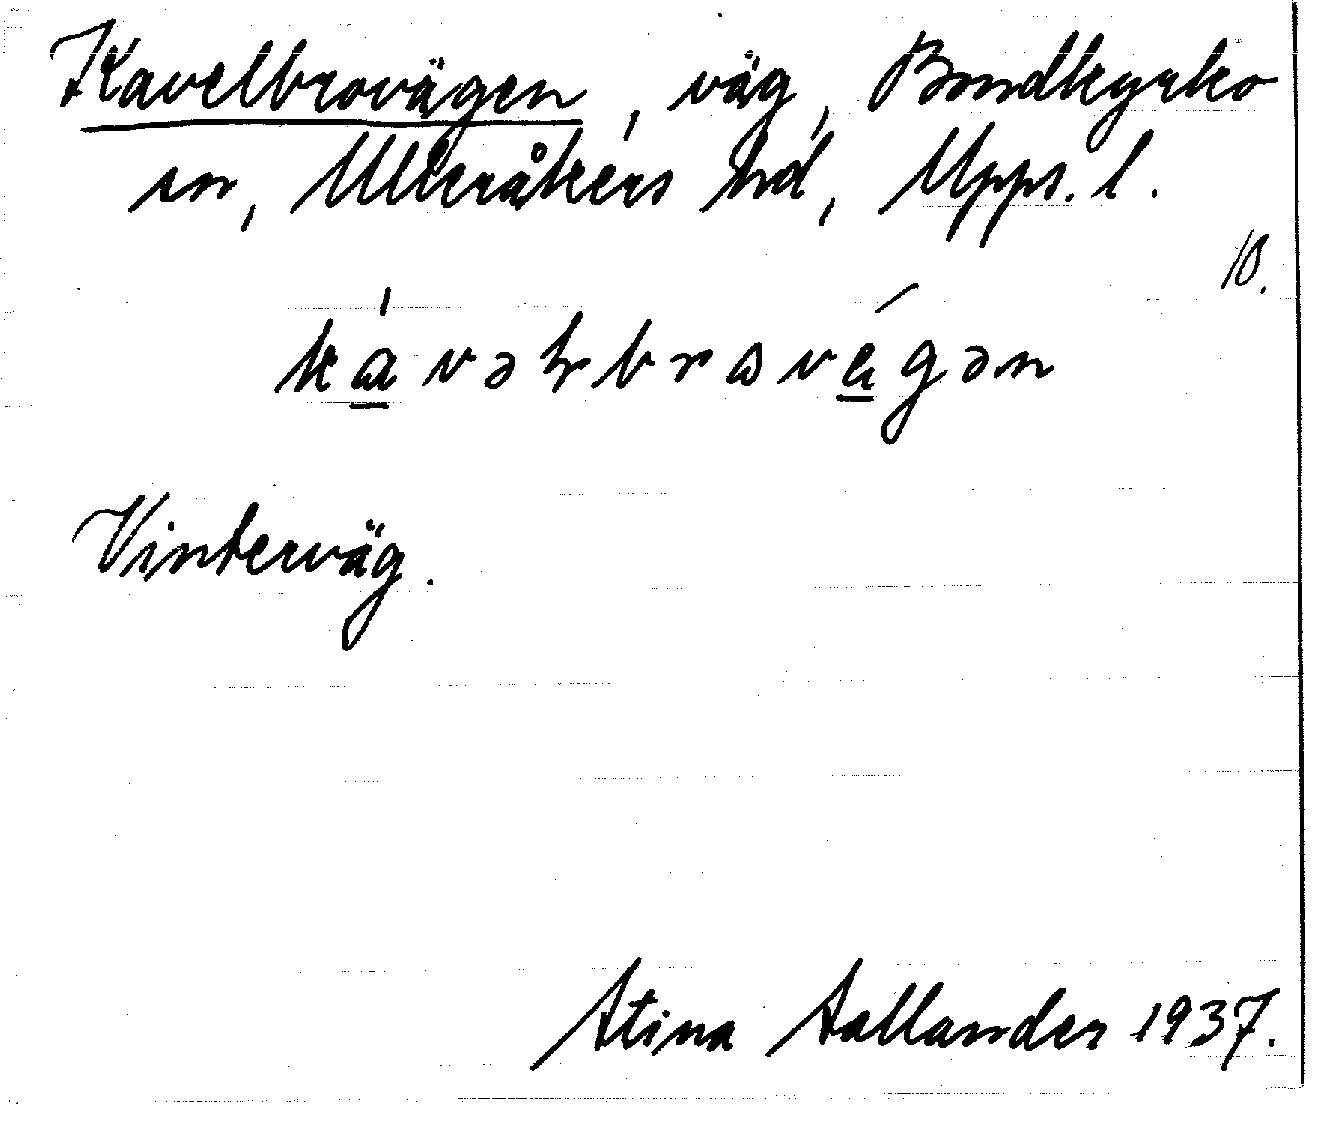 Kavelbrovägen, väg, Bondkyrko
sn, Ulleråkers hd, Upps. l.
10.
Vinterväg.
Stina Sallander 1937.